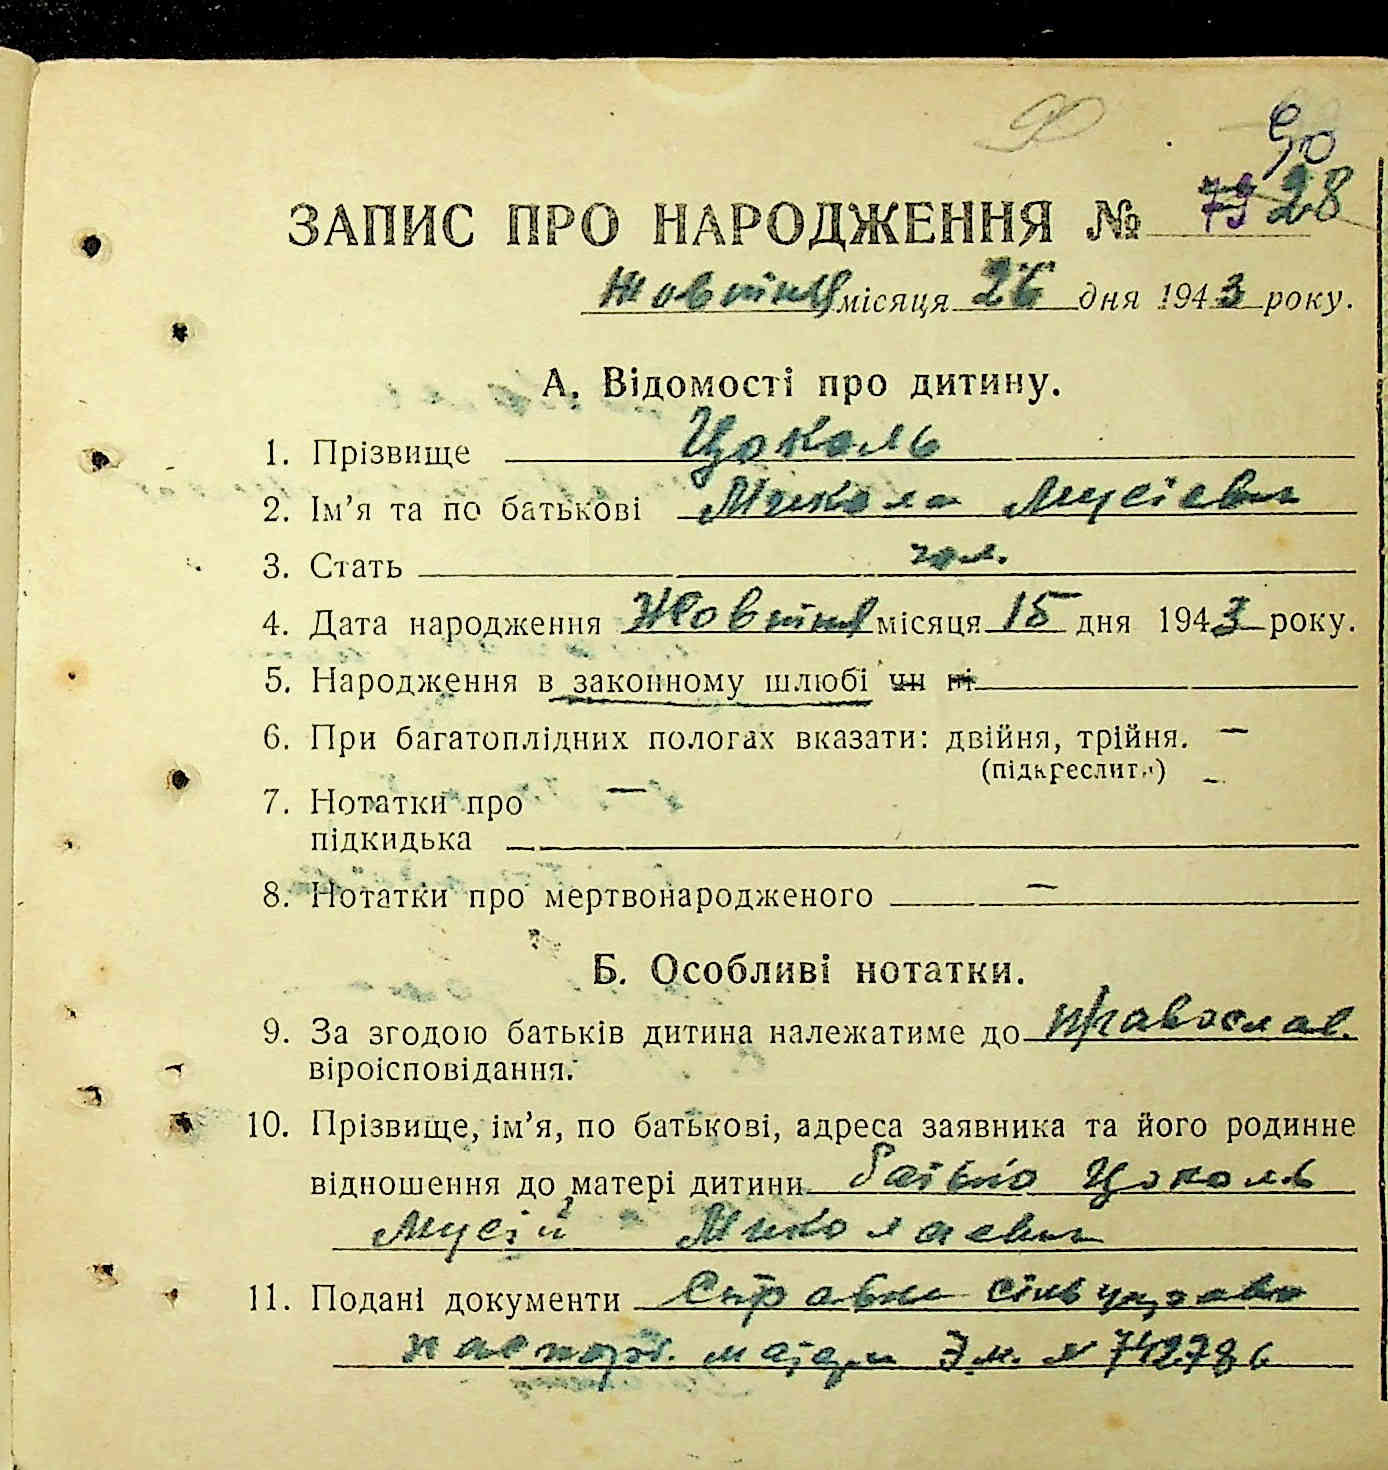 90
ЗАПИС ПРО НАРОДЖЕННЯ № 79 28
Жовтня місяця 26 дня 1943 року.
А. Відомості про дитину.
1. Прізвище Цоколь
2. Ім’я та по батькові Микола Мусієвич
3. Стать чол.
4. Дата народження Жовтня місяця 15 дня 1943 року.
5. Народження в законному шлюбі чи ні
6. При багатоплідних пологах вказати: двійня, трійня. —
(підкреслити) –
7. Нотатки про —
підкидька
8. Нотатки про мертвонародженого —
Б. Особливі нотатки.
9. За згодою батьків дитина належатиме до православ.
віроісповідання.
10. Прізвище, ім’я, по батькові, адреса заявника та його родинне
відношення до матері дитини батько Цоколь
Мусій Миколаевич
11. Подані документи Справка сільуправи
паспорт. матери № 742786